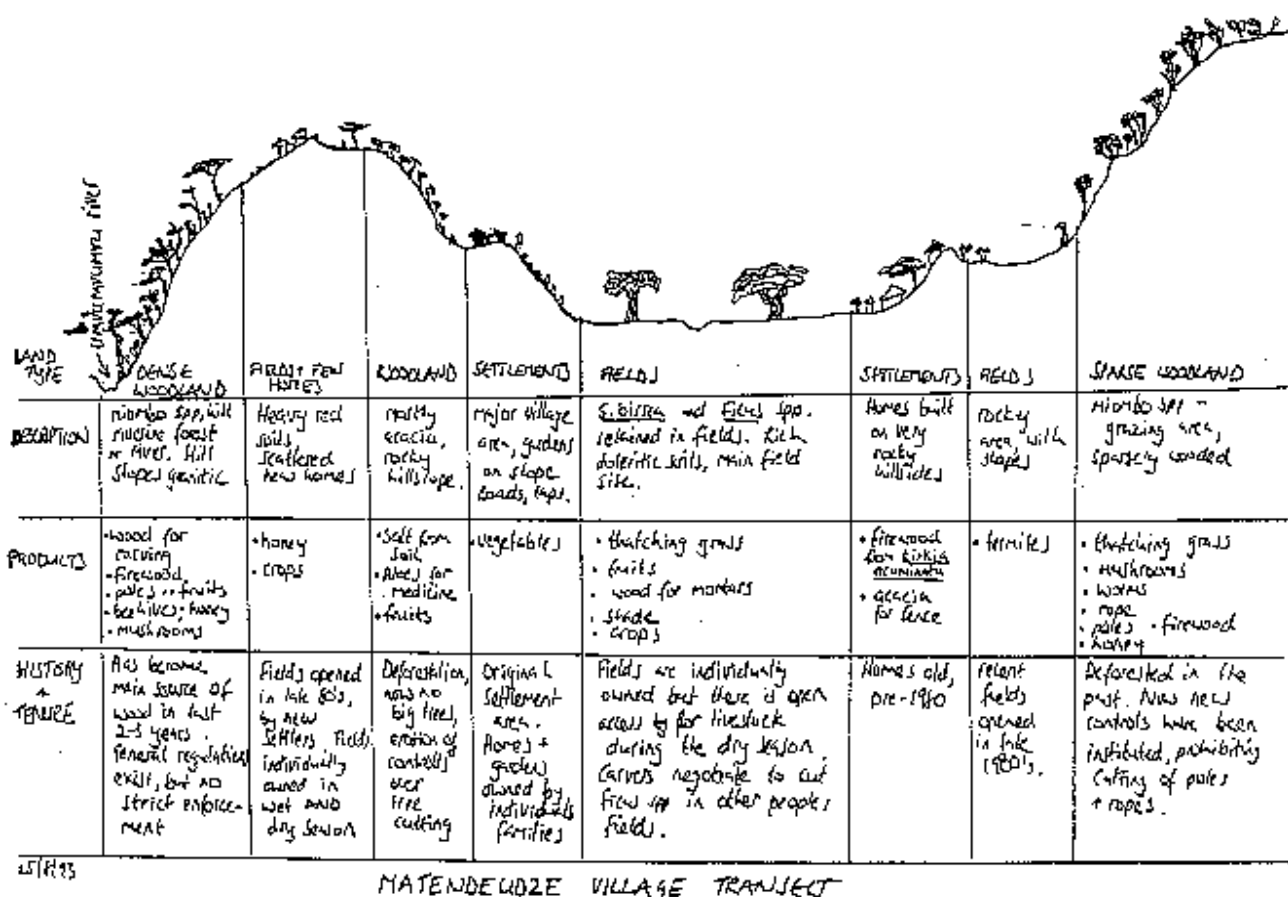 LAND TYPE
DENSE WOODLAND
FIELDS + FEW HOMES
WOODLAND
SETTLEMENTS
FIELDS
SETTLEMENTS
FIELDS
SPARSE WOODLAND
Miombo spp, hill
riverine forest
River. Hill
slopes granitic
Heavy red
soils.
Scattered
new homes
Mostly
acacia,
rocky
hillslope.
Major village
area, gardens
on slope
roads, taps.
S. birrea and Ficus spp.
retained in fields. Rich
doleritic soils, main field
site.
Homes built
on very
rocky
hillsides
rocky
area, with
slopes
Miombo spp -
grazing area,
sparsely wooded
PRODUCTS
• wood for
carving
• firewood
• poles • fruits
• beehives • honey
• mushrooms
• honey
• crops
• Salt from
soil
• Aloes for
medicine
• fruits
• vegetables
• thatching grass
• fruits
• wood for mortars
• shade
• crops
• firewood
from Kirkia
acuminata
• acacia
for fence
• termites
• thatching grass
• mushrooms
• worms
• rope
• poles • firewood
• honey
HISTORY
+
TENURE
Has become
main source of
wood in last
2-3 years.
General regulations
exist, but NO
strict enforce-
ment
Fields opened
in late 80's,
by new
settlers. Fields
individually
owned in
wet AND
dry season
Deforestation,
now no
big trees,
erosion of
controls
over
tree
cutting
Original
Settlement
area.
Homes +
gardens
owned by
individuals
families
Fields are individually
owned but there is open
access by for livestock
during the dry season.
Carvers negotiate to cut
Ficus spp in other peoples
fields.
Homes old,
pre-1980
recent
fields
opened
in late
1980's.
Deforested in the
past. Now new
controls have been
instituted, prohibiting
cutting of poles
+ ropes.
MATENDEUDZE VILLAGE TRANSECT